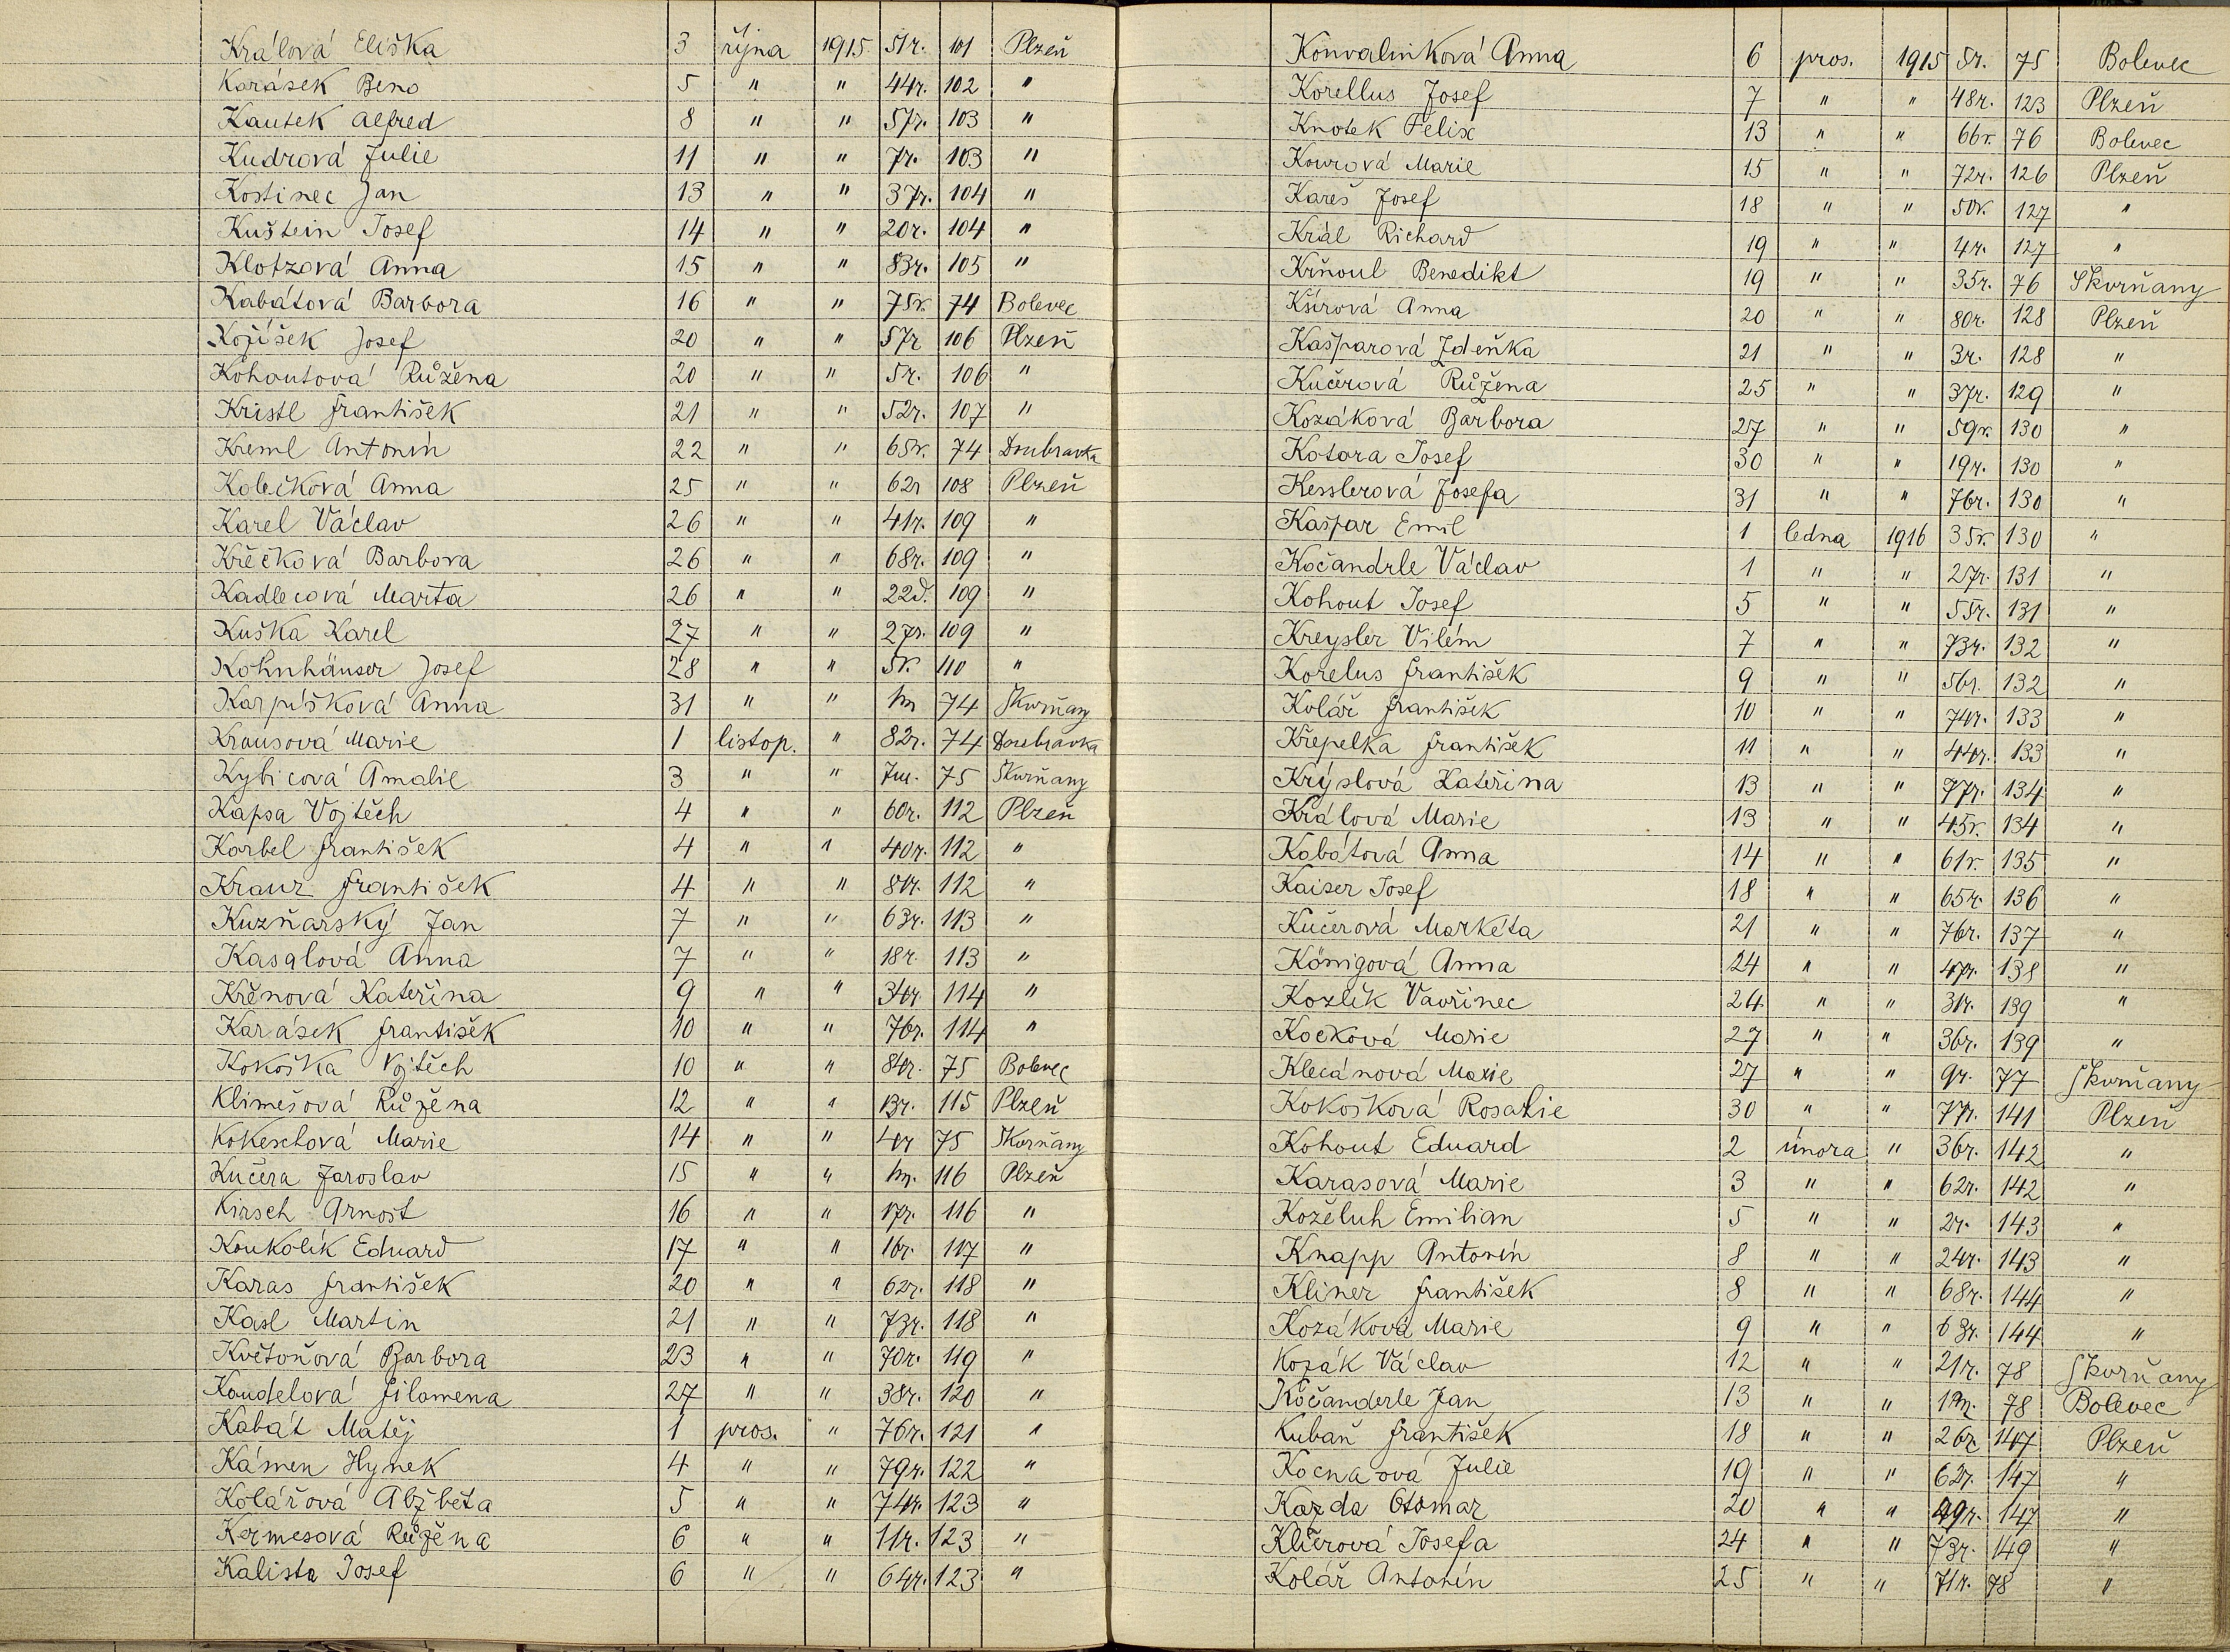 Králová Eliška 3 října 1915 51r. 101 Plzeň
Karásek Beno 5 " " 44r. 102 "
Kautek Alfred 8 " " 57r. 103 "
Kudrová Julie 11 " " 7r. 103 "
Kostinec Jan 13 " " 37r. 104 "
Kuštein Josef 14 " " 20r. 104 "
Klotzová Anna 15 " " 83r. 105 "
Kabátová Barbora 16 " " 75r. 74 Bolevec
Kojíšek Josef 20 " " 57r 106 Plzeň
Kohoutová Růžena 20 " " 5r. 106 "
Kristl František 21 " " 52r. 107 "
Kreml Antonín 22 " " 65r. 74 Doubravka
Kolečková Anna 25 " " 62r 108 Plzeň
Karel Václav 26 " " 41r. 109 "
Křečková Barbora 26 " " 68r. 109 "
Kadlecová Marta 26 " " 22d. 109 "
Kuška Karel 27 " " 27r. 109 "
Kohnhäuser Josef 28 " " 5r. 110 "
Karpíšková Anna 31 " " 74 Skvrňany
Krausová Marie 1 listop. " 82r. 74 Doubravka
Kybicová Amalie 3 " " 7m. 75 Skvrňany
Kapsa Vojtěch 4 " " 60r. 112 Plzeň
Korbel František 4 " " 40r. 112 "
Kraur František 4 " " 81r. 112 "
Kuzňarský Jan 7 " " 63r. 113 "
Kasalová Anna 7 " " 18r. 113 "
Křěnová Kateřina 9 " " 34r. 114 "
Karásek František 10 " " 76r. 114 "
Kokoška Vojtěch 10 " " 84r. 75 Bolevec
Klimešová Růžena 12 " " 13r. 115 Plzeň
Kokeschová Marie 14 " " 4r 75 Skvrňany
Kučera Jaroslav 15 " " 116 Plzeň
Kirsch Arnošt 16 " " 17r. 116 "
Koukolík Eduard 17 " " 16r. 117 "
Karas František 20 " " 62r. 118 "
Kasl Martin 21 " " 73r. 118 "
Květoňová Barbora 23 " " 70r. 119 "
Koudelová Filomena 27 " " 38r. 120 "
Kabát Matěj 1 pros. " 76r. 121 "
Kámen Hynek 4 " " 79r. 122 "
Kolářová Alžběta 5 " " 74r. 123 "
Kermesová Růžena 6 " " 11r. 123 "
Kalista Josef 6 " " 64r. 123 "
Konvalinková Anna 6 pros. 1915 5r. 75 Bolevec
Korellus Josef 7 " " 48r. 123 Plzeň
Knotek Felix 13 " " 66r. 76 Bolevec
Kourová Marie 15 " " 72r. 126 Plzeň
Kareš Josef 18 " " 50r. 127 "
Král Richard 19 " " 4r. 127 "
Krňoul Benedikt 19 " " 35r. 76 Skvrňany
Kšírová Anna 20 " " 80r. 128 Plzeň
Kašparová Zdeňka 21 " " 3r. 128 "
Kučerová Růžena 25 " " 37r. 129 "
Kozáková Barbora 27 " " 59r. 130 "
Kotora Josef 30 " " 19r. 130 "
Kesslerová Josefa 31 " " 76r. 130 "
Kašpar Emil 1 ledna 1916 35r. 130 "
Kočandrle Václav 1 " " 27r. 131 "
Kohout Josef 5 " " 55r. 131 "
Kreysler Vilém 7 " " 73r. 132 "
Korelus František 9 " " 56r. 132 "
Kolář František 10 " " 74r. 133 "
Křepelka František 11 " " 44r. 133 "
Krýslová Kateřina 13 " " 77r. 134 "
Králová Marie 13 " " 45r. 134 "
Kabátová Anna 14 " " 61r. 135 "
Kaiser Josef 18 " " 65r. 136 "
Kučerová Markéta 21 " " 76r. 137 "
Königová Anna 24 " " 47r. 138 "
Kozlík Vavřinec 24 " " 31r. 139 "
Kocková Marie 27 " " 36r. 139 "
Klecánová Marie 27 " " 9r. 77 Skvrňany
Kokošková Rosalie 30 " " 77r. 141 Plzeň
Kohout Eduard 2 února " 36r. 142 "
Karasová Marie 3 " " 62r. 142 "
Koželuh Emilian 5 " " 2r. 143 "
Knapp Antonín 8 " " 24r. 143 "
Kliner František 8 " " 68r. 144 "
Kozáková Marie 9 " " 63r. 144 "
Kozák Václav 12 " " 21r. 78 Skvrňany
Kočanderle Jan 13 " " 78 Bolevec
Kubaň František 18 " " 26r 147 Plzeň
Kocnarová Julie 19 " " 62r. 147 "
Kazda Otomar 20 " " 49r. 147 "
Klierová Josefa 24 " " 73r. 149 "
Kolář Antonín 25 " " 71r. 78 "